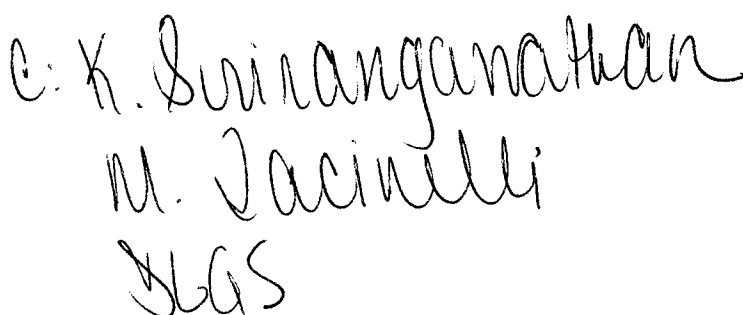 c: K. Suriranganathan
M. Iacinelli
DLGS